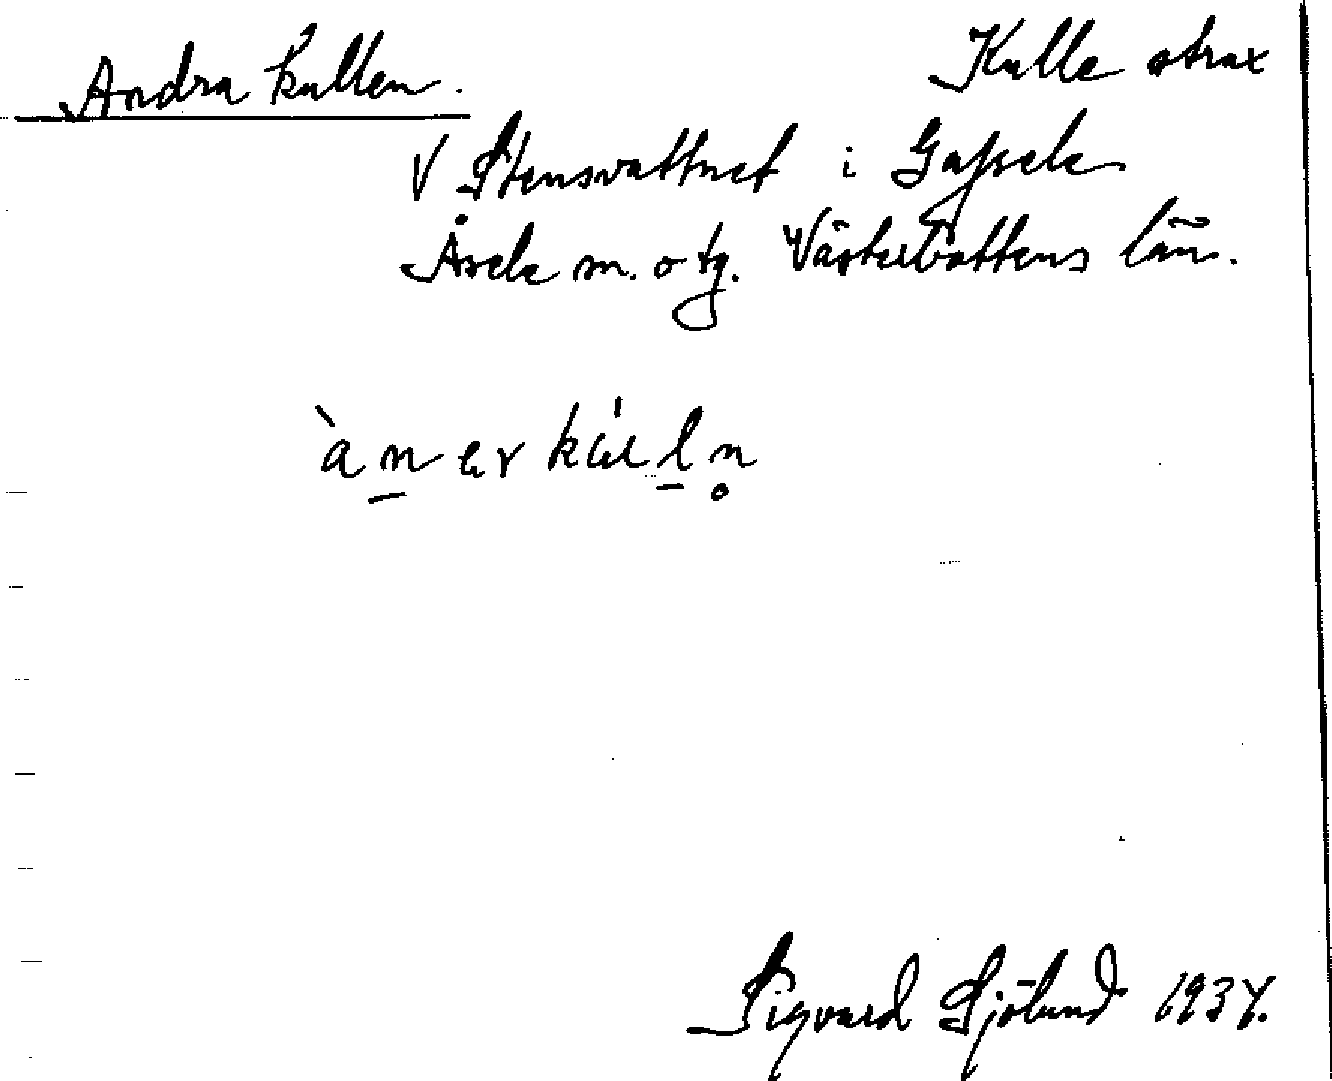 Andra kullen. Kulle strax
V Stensvattnet i Gafsele
Åsele sn. o tg. Västerbottens län.
Sigvard Sjölund 1937.